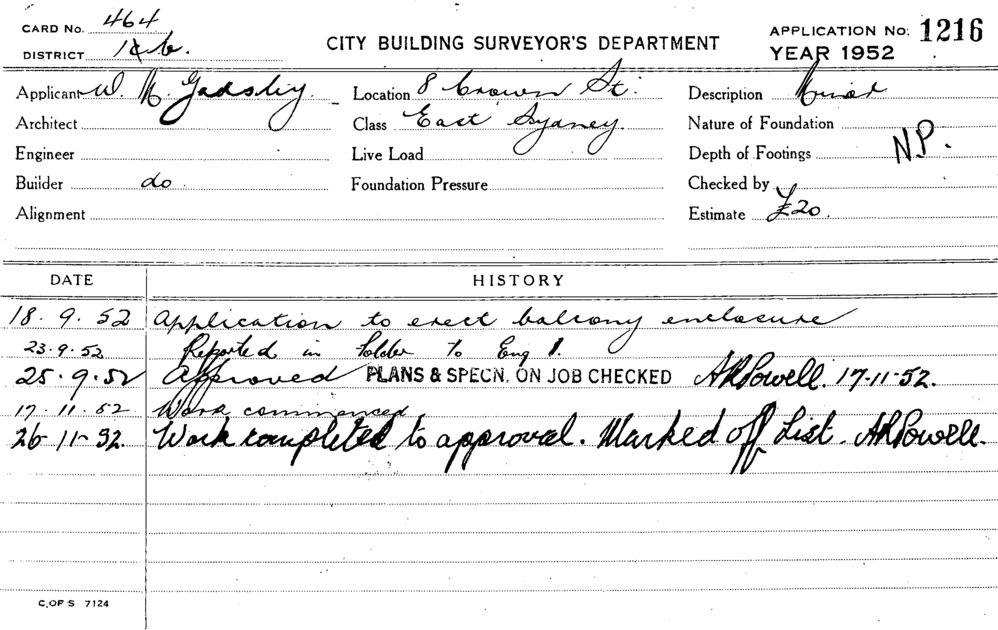 CARD NO. 464
DISTRICT
CITY BUILDING SURVEYOR'S DEPARTMENT
APPLICATION NO. 1216
YEAR 1952
Applicant W. M. Gadsby.
Location 8 Crown St.
Description Minor
Architect
Class East Sydney.
Nature of Foundation
Engineer
Live Load
Depth of Footings N.P.
Builder do
Foundation Pressure
Checked by
Alignment
Estimate £20.
DATE HISTORY
18.9.52 Application to erect balcony enclosure
23.9.52 Reported in folder to Eng 1.
25.9.52 Approved PLANS & SPECN. ON JOB CHECKED ARPowell. 17-11-52.
17.11.52 Work commenced
26-11-52. Work completed to approval. Marked off List. ARPowell.
C. OF S 7124